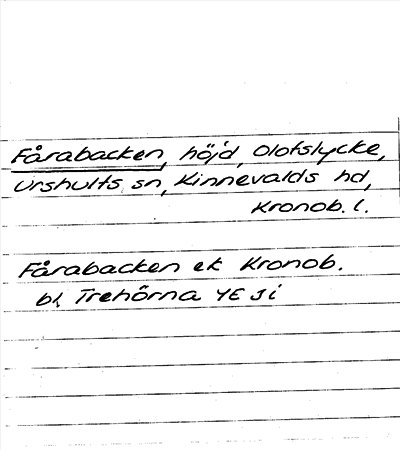 Fårabacken, höjd, Olofslycke,
Urshults sn, Kinnevalds hd,
Kronob. l.
Fårabacken ek Kronob.
bl. Trehörna 4E Si